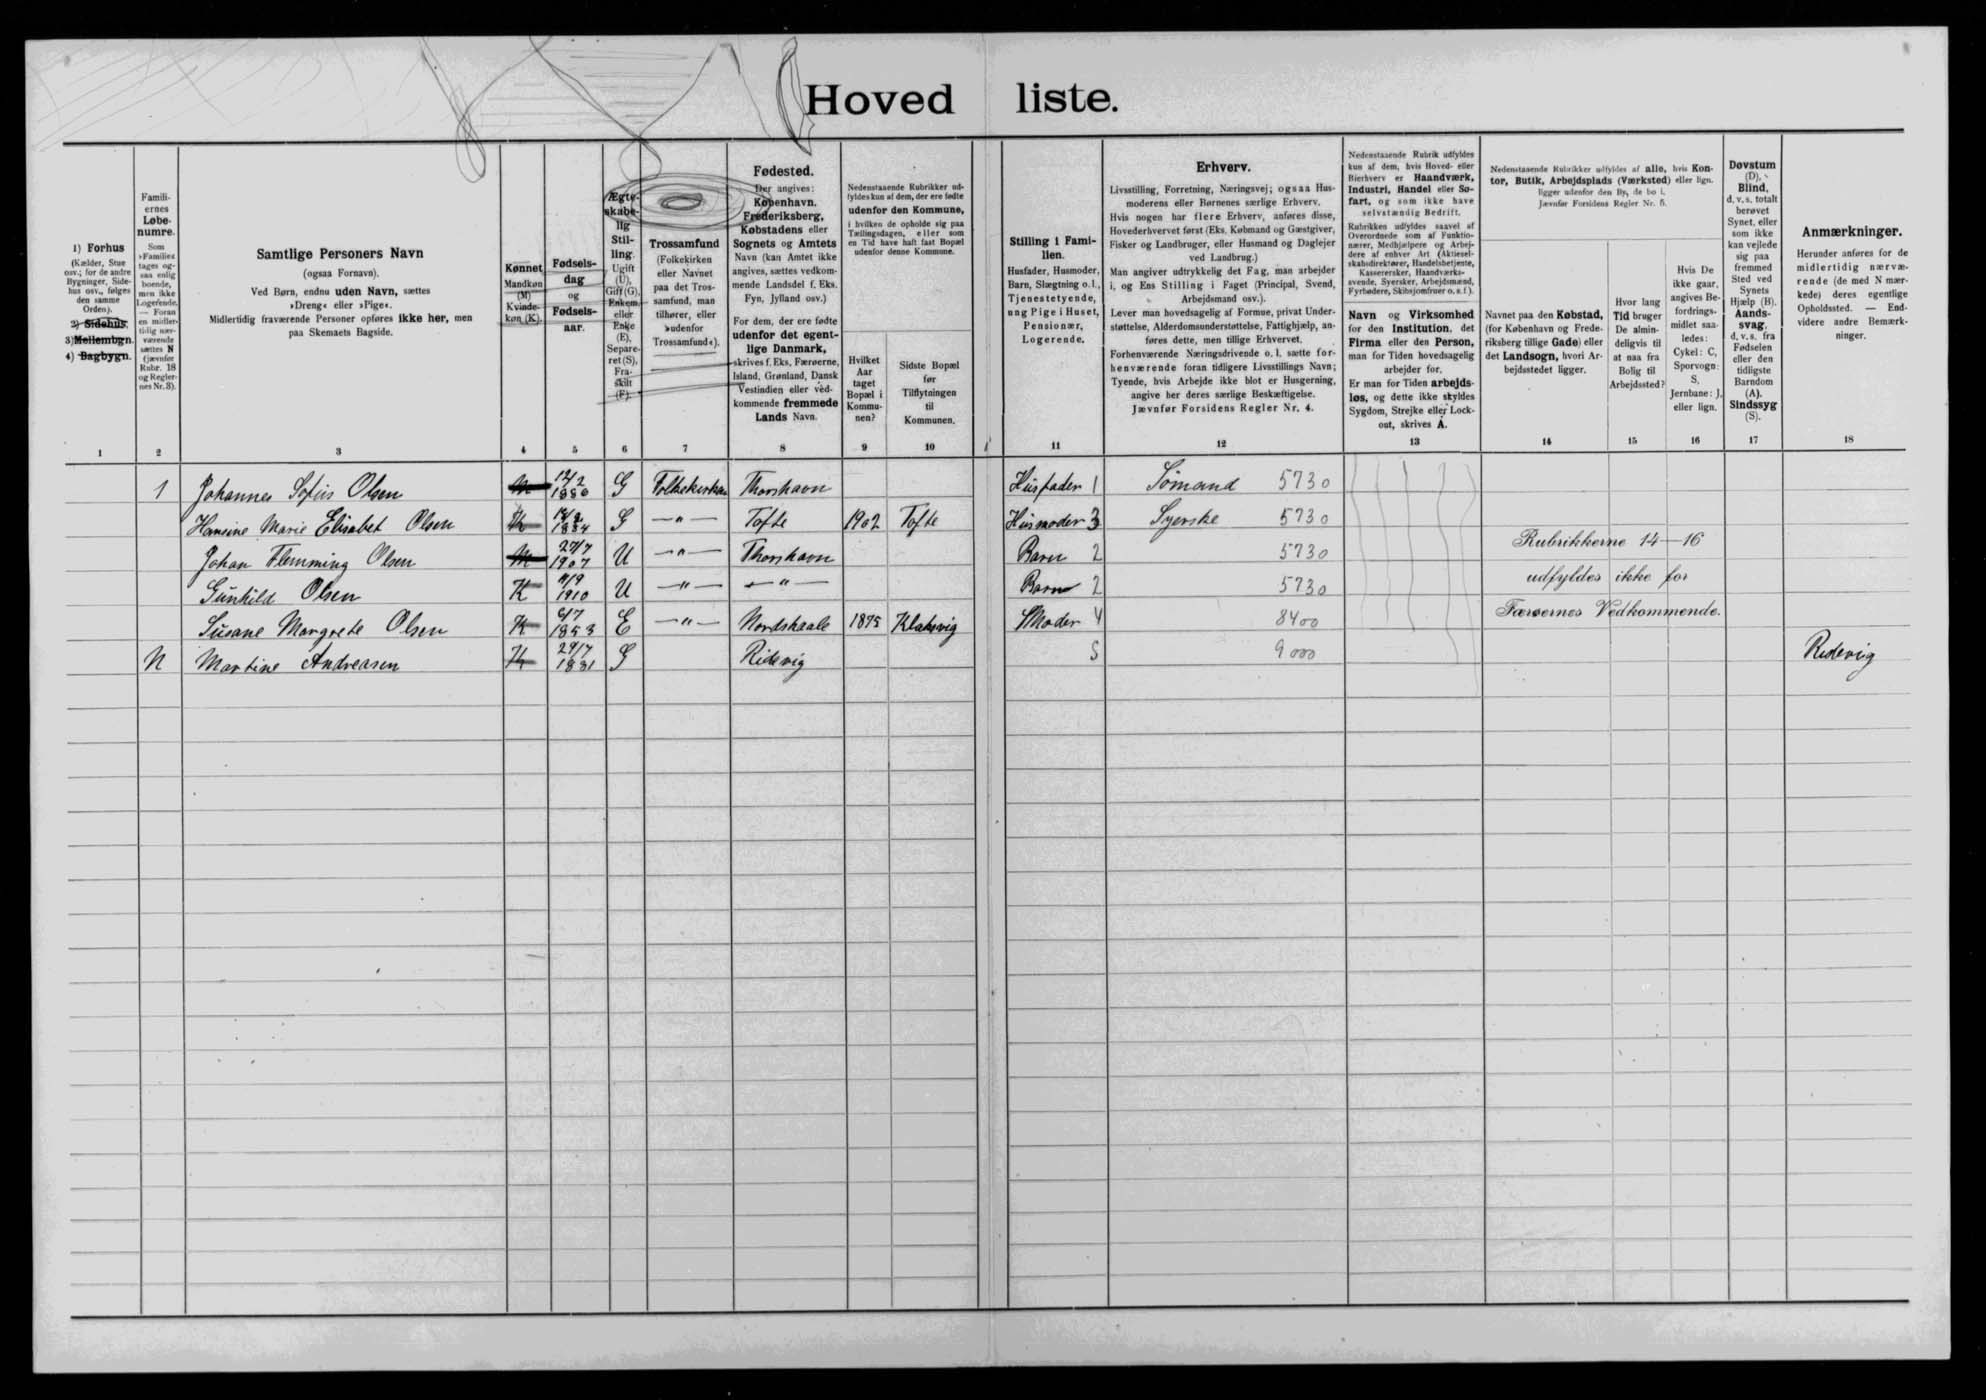 Hovedliste.
1) Forhus
(Kælder, Stue
osv.; for de andre
Bygninger, Side-
hus osv., følges
den samme
Orden).
2) Sidehus,
3) Mellembgn.
4) Bagbygn.
1
Famili-
ernes
Løbe-
numre.
Som
»Familie«
tages og-
saa enlig
boende,
men ikke
Logerende.
— Foran
en midler-
tidig nær-
værende
sættes N
(jævnfør
Rubr. 18
og Regler-
nes Nr. 3).
2
Samtlige Personers Navn
(ogsaa Fornavn).
Ved Børn, endnu uden Navn, sættes
»Dreng« eller »Pige«.
Midlertidig fraværende Personer opføres ikke her, men
paa Skemaets Bagside.
3
Kønnet
Mandkøn
(M)
Kvinde-
køn (K).
4
Fødsels-
dag
og
Fødsels-
aar.
5
Ægte-
skabe-
lig
Stil-
ling.
Ugift
(U),
Gift (G),
Enkem.
eller
Enke
(E),
Separe-
ret (S),
Fra-
skilt
(F).
6
Trossamfund
(Folkekirken
eller Navnet
paa det Tros-
samfund, man
tilhører, eller
»udenfor
Trossamfund«).
7
Fødested.
Der angives:
København,
Frederiksberg,
Købstadens eller
Sognets og Amtets
Navn (kan Amtet ikke
angives, sættes vedkom-
mende Landsdel f. Eks.
Fyn, Jylland osv.)
For dem, der ere fødte
udenfor det egent-
lige Danmark,
skrives f. Eks. Færøerne,
Island, Grønland, Dansk
Vestindien eller ved-
kommende fremmede
Lands Navn.
8
Nedenstaaende Rubrikker ud-
fyldes kun af dem, der ere fødte
udenfor den Kommune,
i hvilken de opholde sig paa
Tællingsdagen, eller som
en Tid have haft fast Bopæl
udenfor denne Kommune.
Hvilket
Aar
taget
Bopæl i
Kommu-
nen?
9
Sidste Bopæl
før
Tilflytningen
til
Kommunen.
10
Stilling i Fami-
lien.
Husfader, Husmoder,
Barn, Slægtning o.l.,
Tjenestetyende,
ung Pige i Huset,
Pensionær,
Logerende.
11
Erhverv.
Livsstilling, Forretning, Næringsvej; ogsaa Hus-
moderens eller Børnenes særlige Erhverv.
Hvis nogen har flere Erhverv, anføres disse,
Hovederhvervet først (Eks. Købmand og Gæstgiver,
Fisker og Landbruger, eller Husmand og Daglejer
ved Landbrug.)
Man angiver udtrykkelig det Fag, man arbejder
i, og Ens Stilling i Faget (Principal, Svend,
Arbejdsmand osv.).
Lever man hovedsagelig af Formue, privat Under-
støttelse, Alderdomsunderstøttelse, Fattighjælp, an-
føres dette, men tillige Erhvervet.
Forhenværende Næringsdrivende o. l. sætte for-
henværende foran tidligere Livsstillings Navn;
Tyende, hvis Arbejde ikke blot er Husgerning,
angive her deres særlige Beskæftigelse.
Jævnfør Forsidens Regler Nr. 4.
12
Nedenstaaende Rubrik udfyldes
kun af dem, hvis Hoved- eller
Bierhverv er Haandværk,
Industri, Handel eller Sø-
fart, og som ikke have
selvstændig Bedrift.
Rubrikken udfyldes saavel af
Overordnede som af Funktio-
nærer, Medhjælpere og Arbej-
dere af enhver Art (Aktiesel-
skabsdirektører, Handelsbetjente,
Kasserersker, Haandværks-
svende, Syersker, Arbejdsmænd,
Fyrbødere, Skibsjomfruer o. s. f.).
Navn og Virksomhed
for den Institution, det
Firma eller den Person,
man for Tiden hovedsagelig
arbejder for.
Er man for Tiden arbejds-
løs, og dette ikke skyldes
Sygdom, Strejke eller Lock-
out, skrives A.
13
Nedenstaaende Rubrikker udfyldes af alle, hvis Kon-
tor, Butik, Arbejdsplads (Værksted) eller lign.
ligger udenfor den By, de bo i.
Jævnfør Forsidens Regler Nr. 5.
Navnet paa den Købstad,
(for København og Frede-
riksberg tillige Gade) eller
det Landsogn, hvori Ar-
bejdsstedet ligger.
14
Hvor lang
Tid bruger
De almin-
deligvis til
at naa fra
Bolig til
Arbejdssted?
15
Hvis De
ikke gaar,
angives Be-
fordrings-
midlet saa-
ledes:
Cykel: C,
Sporvogn:
S,
Jernbane: J,
eller lign.
16
Døvstum
(D).
Blind,
d. v. s. totalt
berøvet
Synet, eller
som ikke
kan vejlede
sig paa
fremmed
Sted ved
Synets
Hjælp (B).
Aands-
svag,
d. v. s. fra
Fødselen
eller den
tidligste
Barndom
(A).
Sindssyg
(S).
17
Anmærkninger.
Herunder anføres for de
midlertidig nærvæ-
rende (de med N mær-
kede) deres egentlige
Opholdssted. — End-
videre andre Bemærk-
ninger.
18
1 Johannes Sofus Olsen M 12/2 1880 G Folkekirken Thorshavn Husfader 1 Sømand 5730
Hansine Marie Elisabet Olsen K 1884 G —"— Tofte 1902 Tofte Husmoder 3 Syerske 5730
Johan Flemming Olsen M 27/7 1907 U —"— Thorshavn Barn 2 5730
Gunhild Olsen K 1910 U —"— —"— Barn 2 5730
Susane Margrete Olsen K 1853 E —"— Nordskaale 1875 Klaksvig Moder 4 8400
N Martine Andreasen K 29/7 1881 G Ridevig S 9000 Ridevig
Rubrikkerne 14—16
udfyldes ikke for
Færøernes Vedkommende.